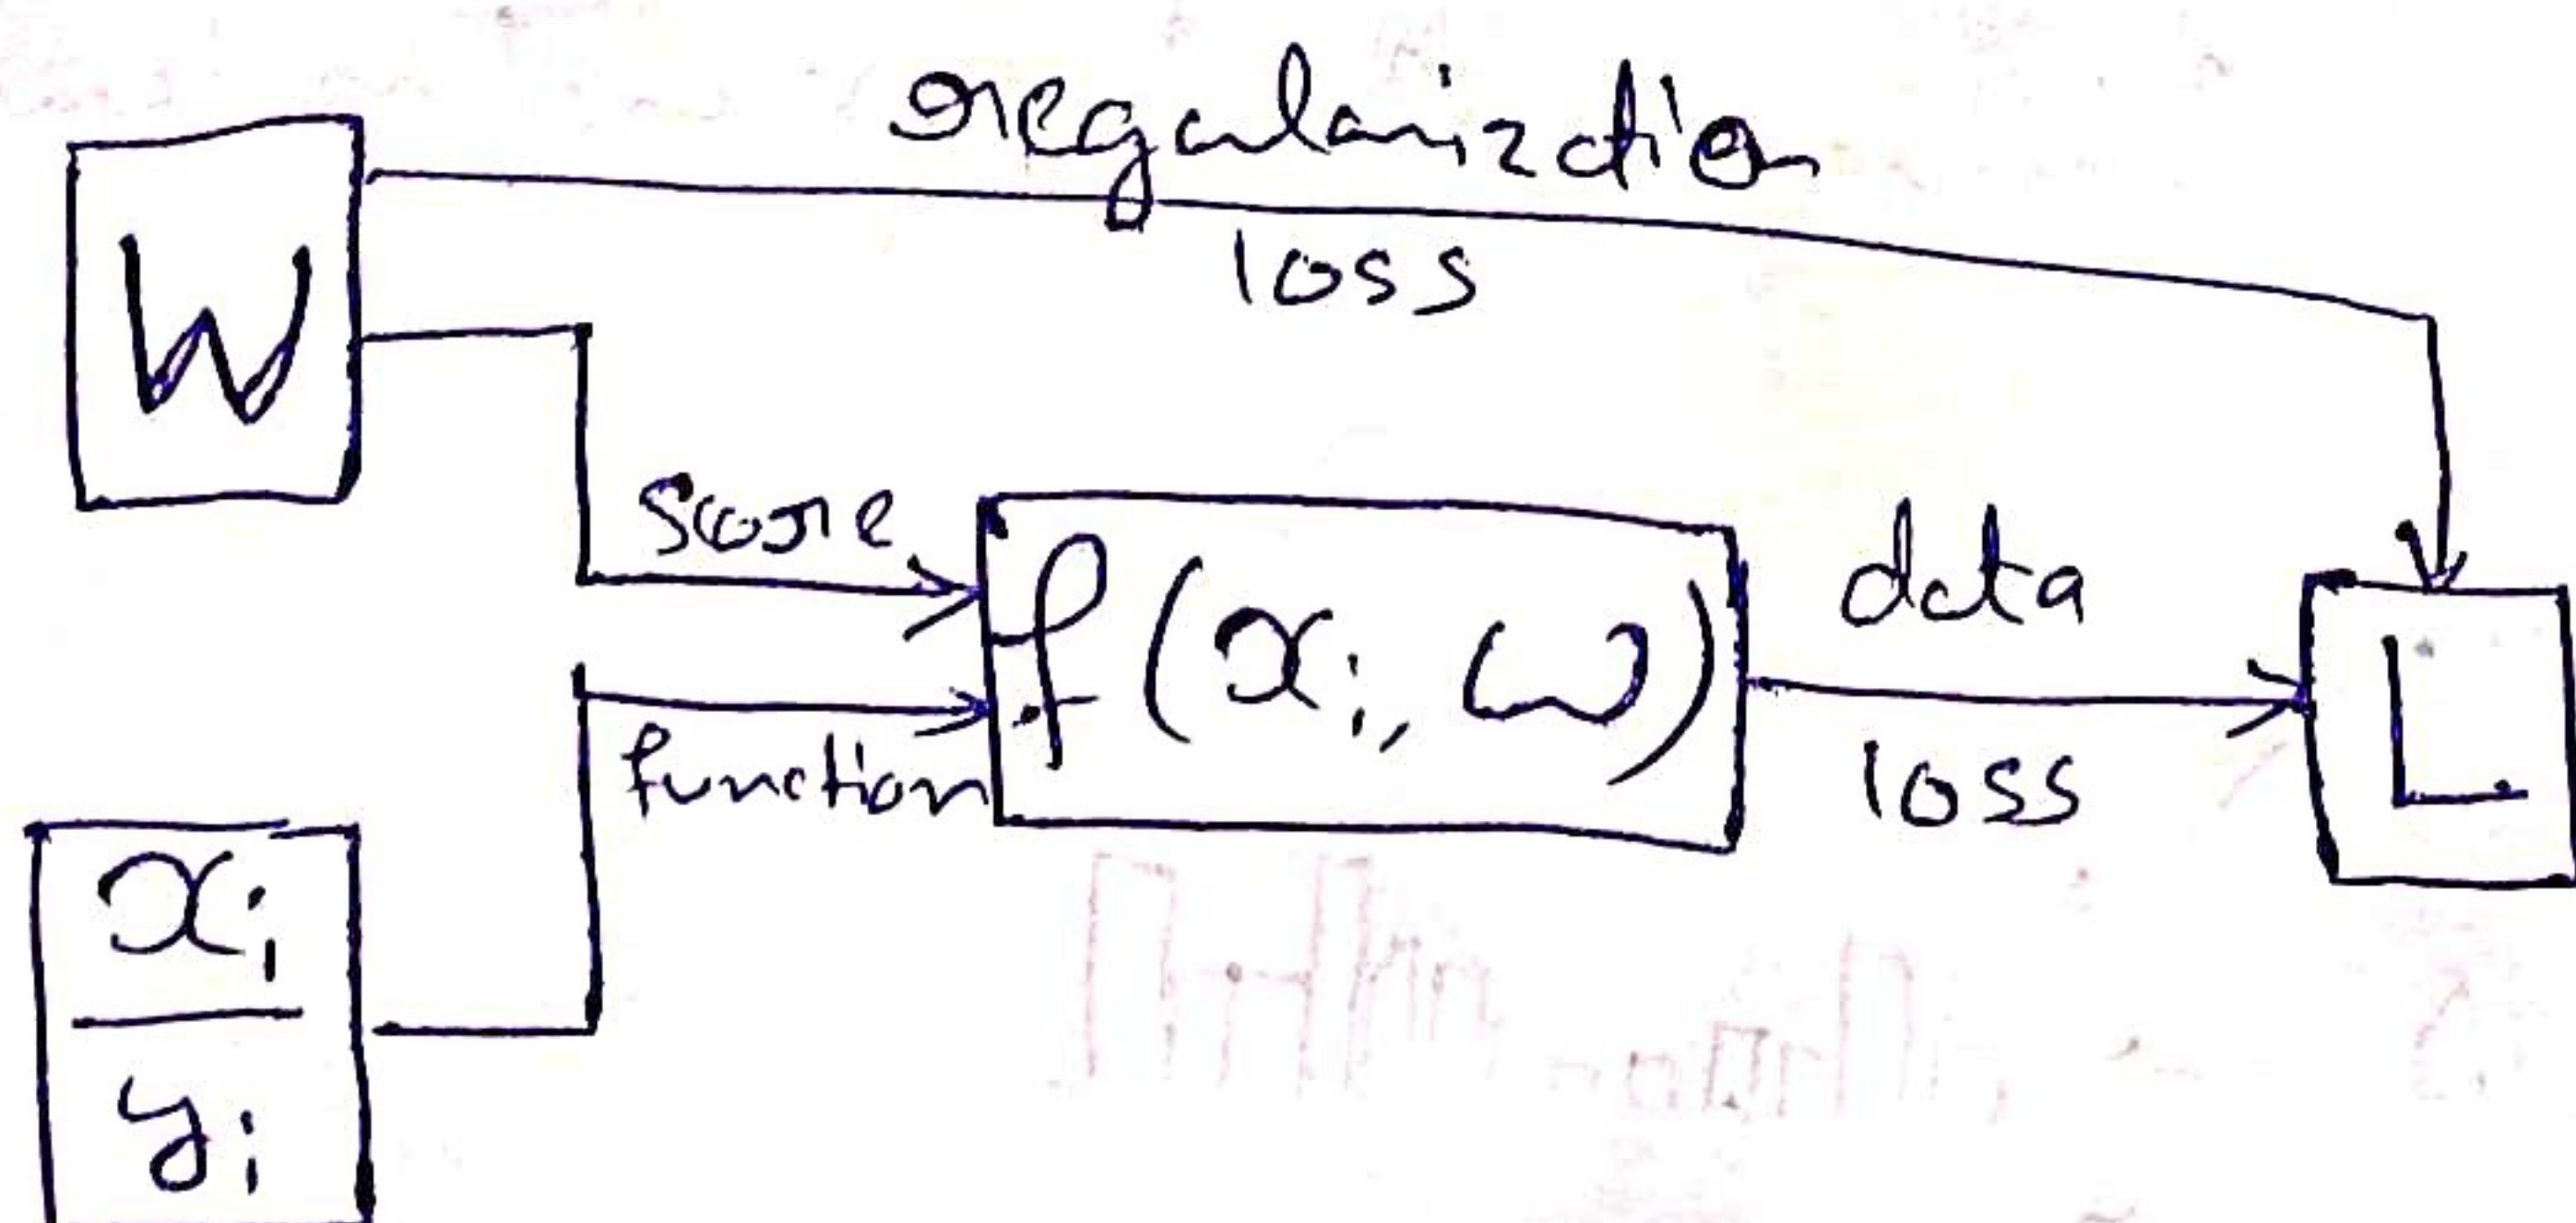 regularization
loss
W
score
function
f(xi, w)
data
loss
L
xi
yi